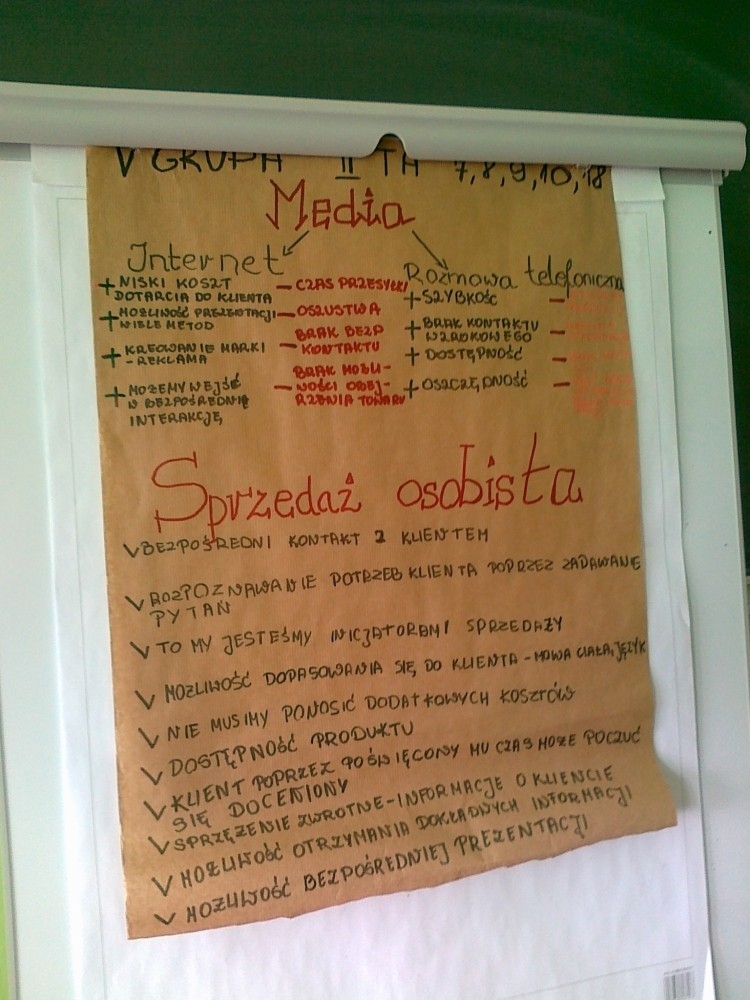 V GRUPA II TA 7,8,9,10,18
Media
Internet
+ NISKI KOSZT
DOTARCIA DO KLIENTA
+ MOŻLIWOŚĆ PREZENTACJI
WIELE METOD
+ KREOWANIE MARKI
- REKLAMA
+ MOŻEMY WEJŚĆ
W BEZPOŚREDNIĄ
INTERAKCJĘ
- CZAS PRZESYŁKI
- OSZUSTWA
BRAK BEZP
- KONTAKTU
BRAK MOŻLI-
- WOŚCI OBEJ-
RZENIA TOWARU
Rozmowa telefoniczna
+ SZYBKOŚĆ
+ BRAK KONTAKTU
WZROKOWEGO
+ DOSTĘPNOŚĆ
+ OSZCZĘDNOŚĆ
Sprzedaż osobista
BEZPOŚREDNI KONTAKT Z KLIENTEM
ROZPOZNAWANIE POTRZEB KLIENTA POPRZEZ ZADAWANIE
PYTAŃ
TO MY JESTEŚMY INICJATORAMI SPRZEDAŻY
MOŻLIWOŚĆ DOPASOWANIA SIĘ DO KLIENTA - MOWA CIAŁA, JĘZYK
NIE MUSIMY PONOSIĆ DODATKOWYCH KOSZTÓW
DOSTĘPNOŚĆ PRODUKTU
KLIENT POPRZEZ POŚWIĘCONY MU CZAS MOŻE POCZUĆ
SIĘ DOCENIONY
SPRZĘŻENIE ZWROTNE - INFORMACJE O KLIENCIE
MOŻLIWOŚĆ OTRZYMANIA DOKŁADNYCH INFORMACJI
MOŻLIWOŚĆ BEZPOŚREDNIEJ PREZENTACJI